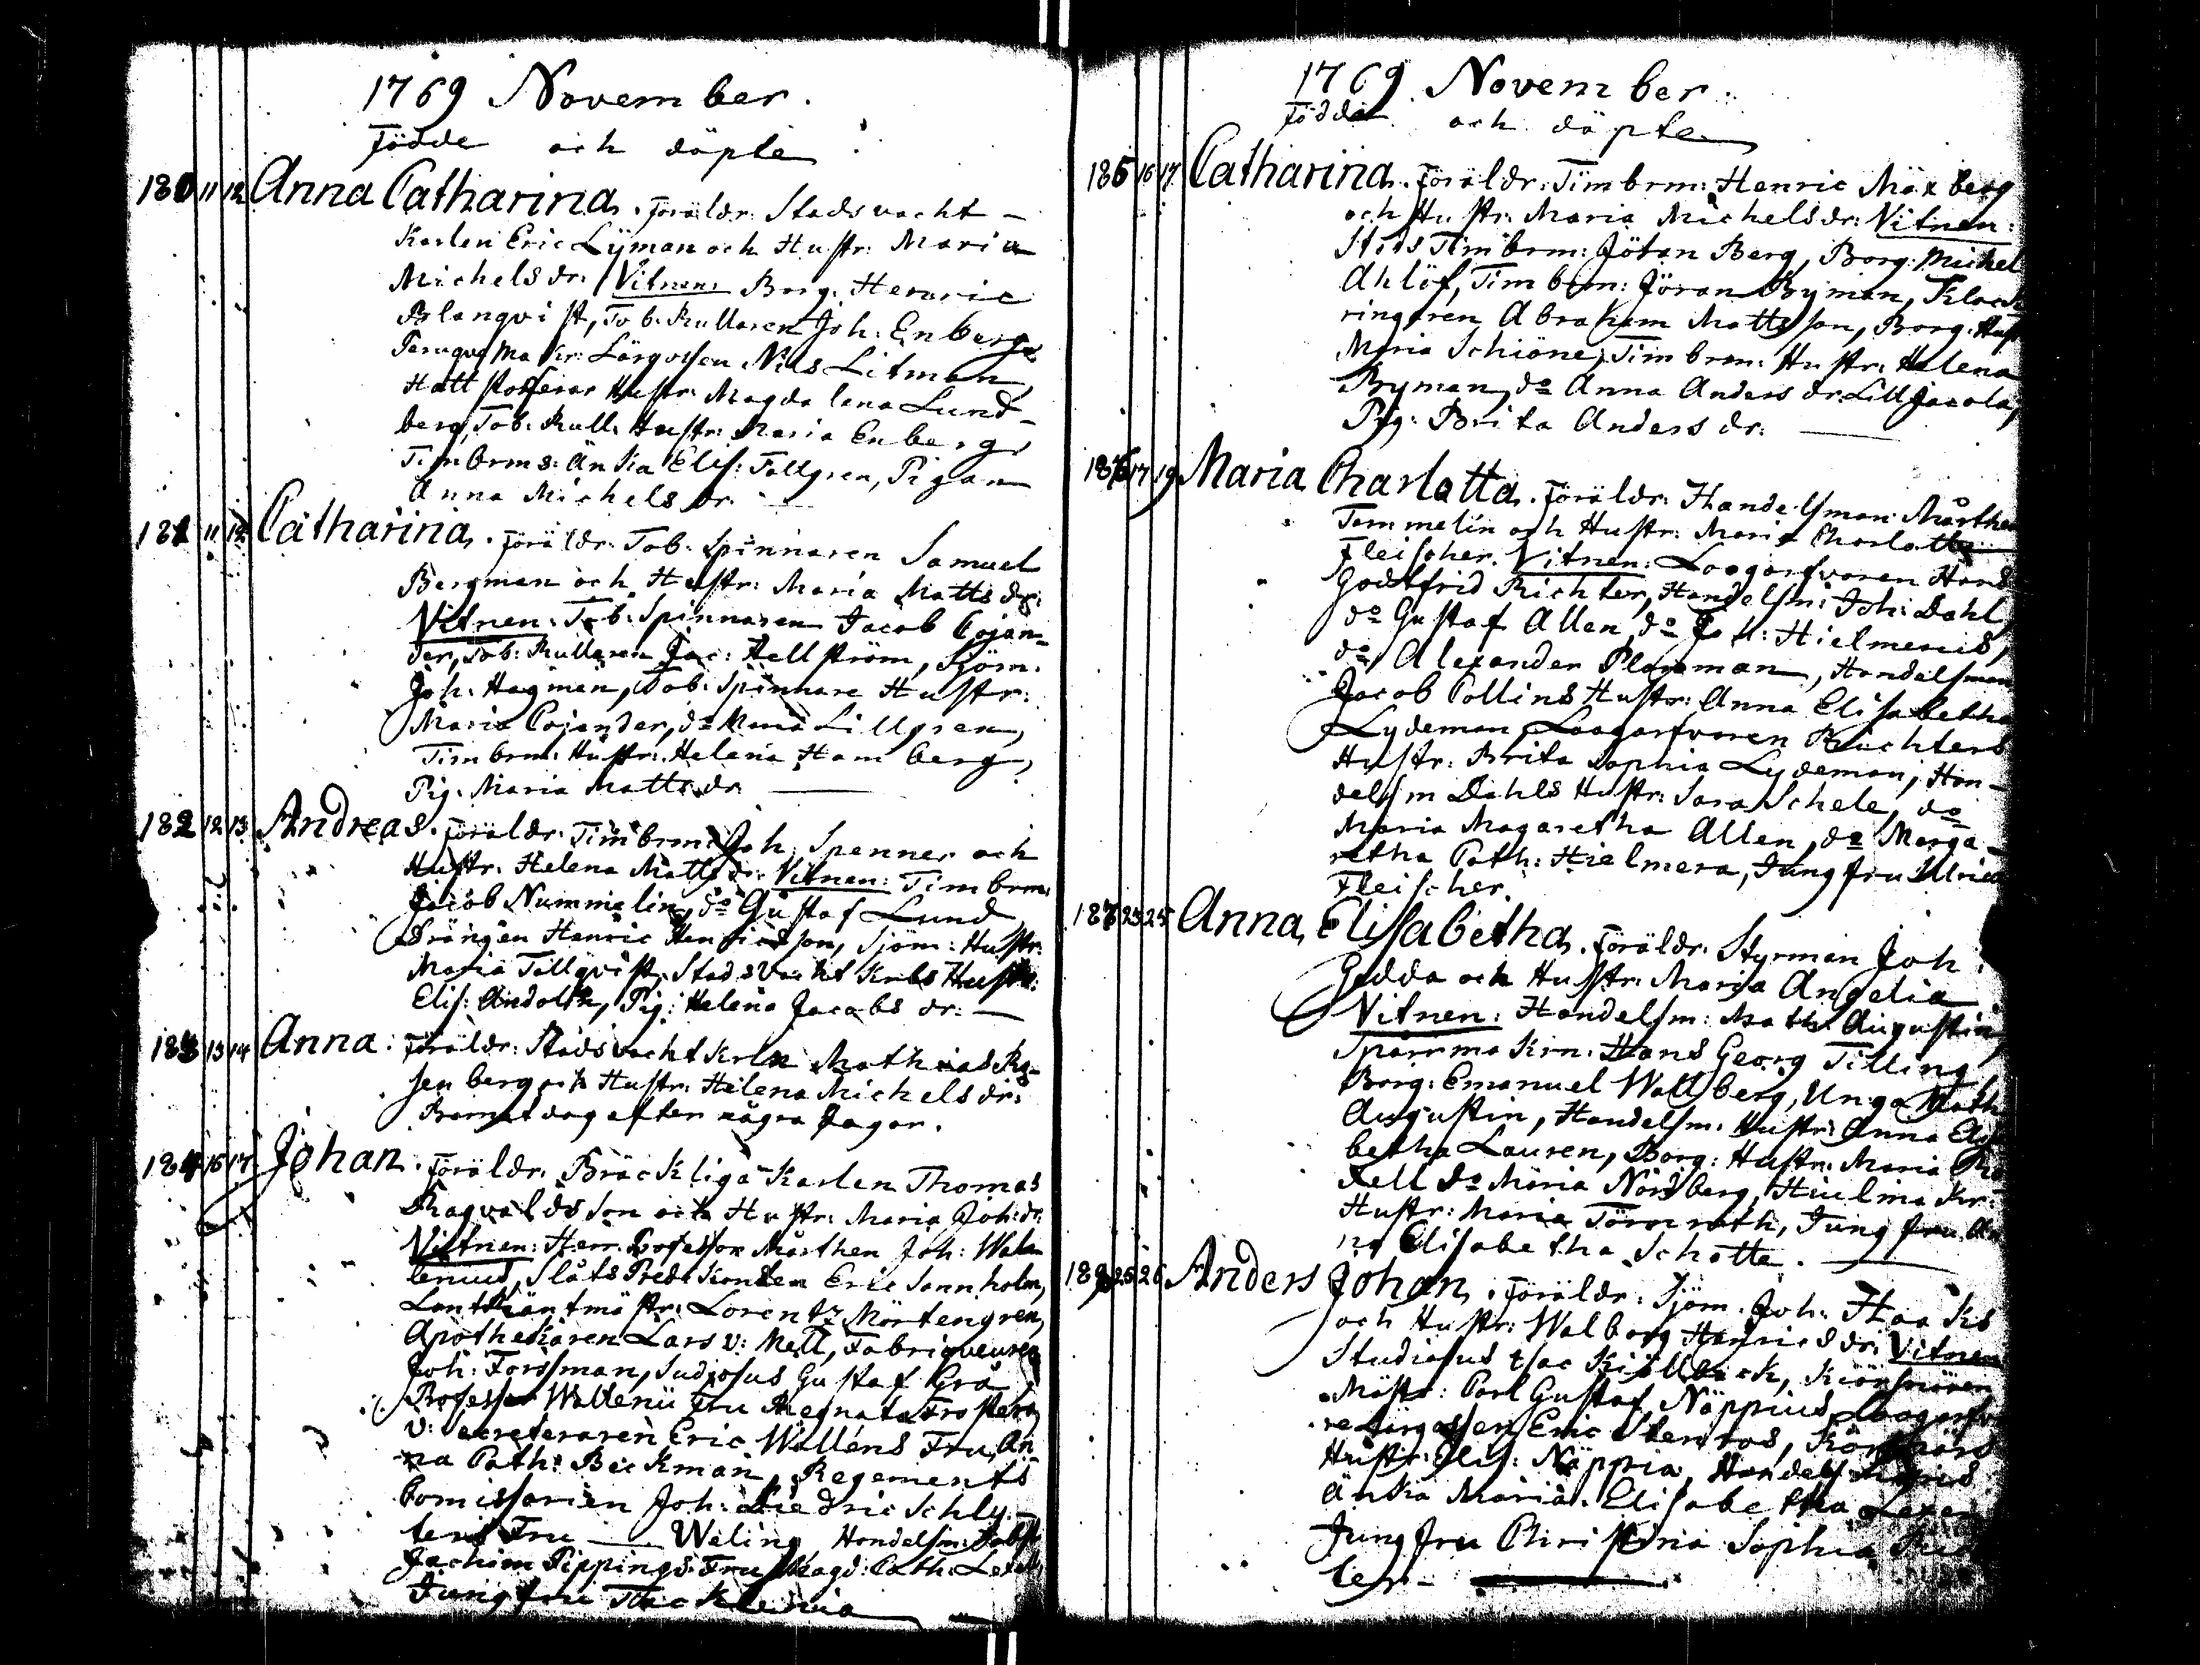 1769 November.
Födde och döpte
180 11 12 Anna Catharina. Föräldr: Stadsvacht-
Karlen Eric Lyman och Hustr: Maria
Michelsdr: Vitnen: Borg. Henric
Blanqvist, Tob. Rullaren Joh: Enberg,
Peruqvmakr: Lärgossen Nils Litman,
Hattstofferar Hustr: Magdalena Lund-
berg, Tob. Rull. Hustr: Maria Enberg,
Timbrms: Änka Elis: Tallgren, Pigan
Anna Michelsdr.
181 11 12 Catharina. Föräldr: Tob. Spinnaren Samuel
Bergman och Hustr: Maria Mattsdr:
Vitnen: Tob. Spinnaren Jacob Cojan-
der, Tob: Rullaren Jac: Hellström, Sjöm:
Joh. Hagman, Tob. Spinnare Hustr:
Maria Cojander, do Maria Lillgren,
Timbrm: Hustr: Helena Hamberg,
Pig. Maria Mattsdr.
182 12 13 Andreas. Föräldr: Timbrm: Joh. Spenner och
Hustr: Helena Mattsdr: Vitnen: Timbrm:
Jacob Nummelin, do Gustaf Lund
Drängen Henric Henricsson, Sjöm: Hustr:
Maria Tallqvist, Stadsvacht Krls Hustr:
Elis: Andolin, Pig: Helena Jacobsdr:
183 13 14 Anna. Föräldr: Stadsvacht Krln Mathias Ro-
senberg och Hustr: Helena Michelsdr:
Barnet dog efter några dagar.
184 15 17 Johan. Föräldr: Bräckliga Karlen Thomas
Ragvaldsson och Hustr: Maria Joh:dr:
Vittnen: Herr Professor Mårthen Joh: Walle
lenius, Slåts Predikanten Eric Sonnholm,
Lant Räntmästr: Lorentz Mörtengren,
Apothekaren Lars v: Mell, Fabriqveuren
Joh: Forssman, Sudiosus Gustaf Grå,
Professor Wallenii Fru Regnata Frosterus
V: Secreteraren Eric Wallens Fru An-
na Cath: Beckman, Regements
Comissarien Joh: Diedric Schly-
ters Fru Weling, Handelsm:
Jochim Pippings Fru Magd: Cath: Lexell,
Jungfru
1769. November.
Födde och döpte
185 16 17 Catharina. Föräldr: Timbrm: Henric Mäxberg
och Hustr: Maria Michelsdr: Vitnen:
Stads Timbrm: Jöran Berg, Borg: Michel
Ahlöf, Timbrm: Jöran Ryman, Klock
ringaren Abraham Mattsson, Borg. Hust
Maria Schiöne, Timbrm: Hustr: Helena
Ryman, do Anna Andersdr. Lill Jacola,
Pig: Brita Andersdr:
186 17 19 Maria Charlotta. Föräldr: Handelsman Mårthen
Tammelin och Hustr: Maria Charlotta
Fleischer. Vitnen: Loogarfvaren Hans
Godtfrid Richter, Handelsm: Joh: Dahl,
do Gustaf Allen, do Joh: Hielmerus,
do Alexander Plagman, Handelsman
Jacob Collins Hustr: Anna Elisabetha
Lydeman, Loogarfvaren Richters
Hustr: Brita Sophia Lydeman, Han-
delsm Dahls Hustr: Sara Schele, do
Maria Magaretha Allen, do Marga-
retha Cath: Hielmera, Jungfru Ulrica
Fleischer.
187 23 25 Anna Elisabetha. Föräldr: Styrman Joh:
Gadda och Hustr: Maria Angelia
Vitnen: Handelsm: Math: Augustin,
Spårrmakrn: Hans Georg Tilling
Borg: Emanuel Wallberg, Unga Math
Augustin, Handelsm: Hustr: Anna Elisa
betha Lauren, Borg: Hustr: Maria
do Maria Nordberg, Hiulmakr:
Hustr: Maria Törnroth, Jungfru An
na Elisabetha Schotte.
188 25 26 Anders Johan. Föräldr: Sjöm. Joh: Haaks
och Hustr: Walborg Henricsdr: Vitnen
Studiosus Isac Kiällbäck, Kiörsnären
Mästr: Carl Gustaf Näppius, Loogarfva
re Lärgossen Eric Stenroos, Körsnärs
Hustr: Elis: Näppia, Handelsm
Änka Maria Elisabetha Lexell
Jungfru Christina Sophia Rich
ter